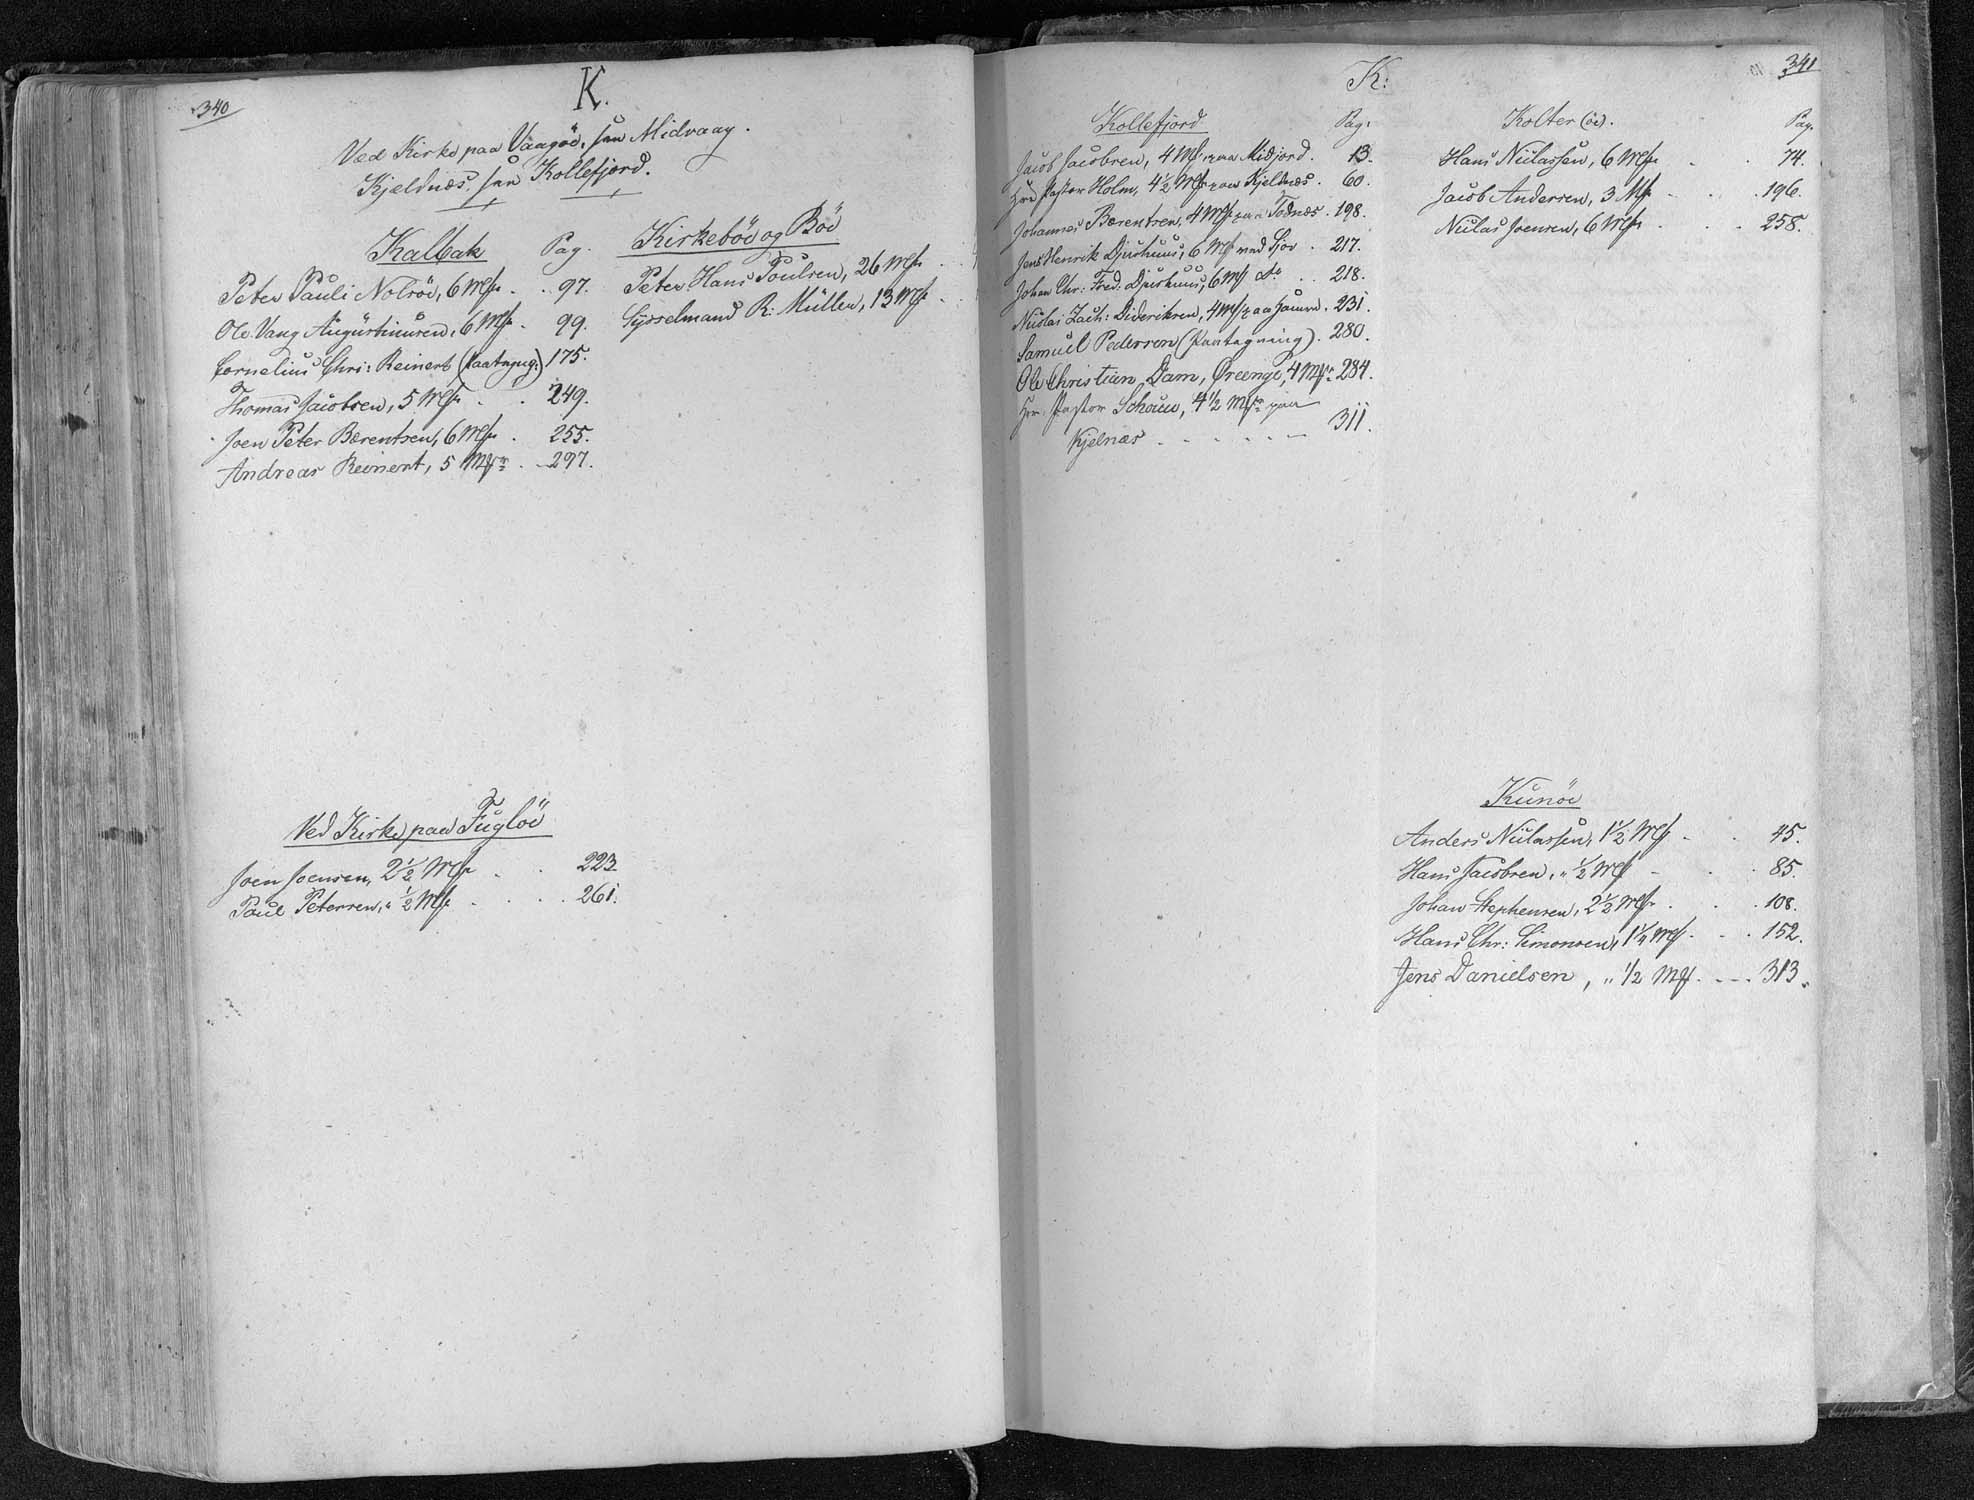 340
K.
Ved Kirke paa Vaagöe, see Midvaag.
Kjeldnæs, see Kollefjord.
Kalbak Pag.
Peter Pauli Nolsöe, 6 Mk . . 97.
Ole Vang Augustinusen, 6 Mk . 99.
Cornelius Chri: Reinert (Paategng:) 175.
Thomas Jacobsen, 5 Mk . . 249.
Joen Peter Bærentsen, 6 Mk . 255.
Andreas Reinert, 5 Mkr . 297.
Kirkeböe og Böe
Peter Hans Poulsen, 26 Mk . .
Sysselmand R: Müller, 13 Mk . .
Ved Kirke paa Fuglöe
Joen Joensen, 2 1/2 Mk . . 223
Paul Petersen, " 1/2 Mk . . . . 261.
341
K:
Kollefjord Pag:
Jacob Jacobsen, 4 Mk paa Midjord . 13.
Hrr Pastor Holm, 4 1/2 Mk paa Kjeldnæs . 60.
Johannes Bærentsen, 4 Mk paa Todnæs . 198.
Jens Henrik Djurhuus, 6 Mk ved Sjov . 217.
Johan Chr: Fred: Djurhuus, 6 Mk do . . 218.
Niclas Zach: Dideriksen, 4 Mk paa . 231.
Samuel Pedersen (Paategning) . 280.
Ole Christian Dam, Øreenge, 4 Mkr 284.
Hrr. Pastor 4 1/2 Mkr paa
Kjelnæs . . . . . . 311.
Kolter (öe). Pag.
Hans Niclassen, 6 Mk . . 74.
Jacob Andersen, 3 Mk . . . 196.
Niclas Joensen, 6 Mk . . . 258.
Kunöe
Anders Niclassen, 1 1/2 Mk . . 45.
Hans Jacobsen, " 1/2 Mk . . . 85.
Johan Stephensen, 2 1/2 Mk . . . 108.
Hans Chr: Simonsen, 1 1/4 Mk . . . 152.
Jens Danielsen, " 1/2 Mk . . . . 313.